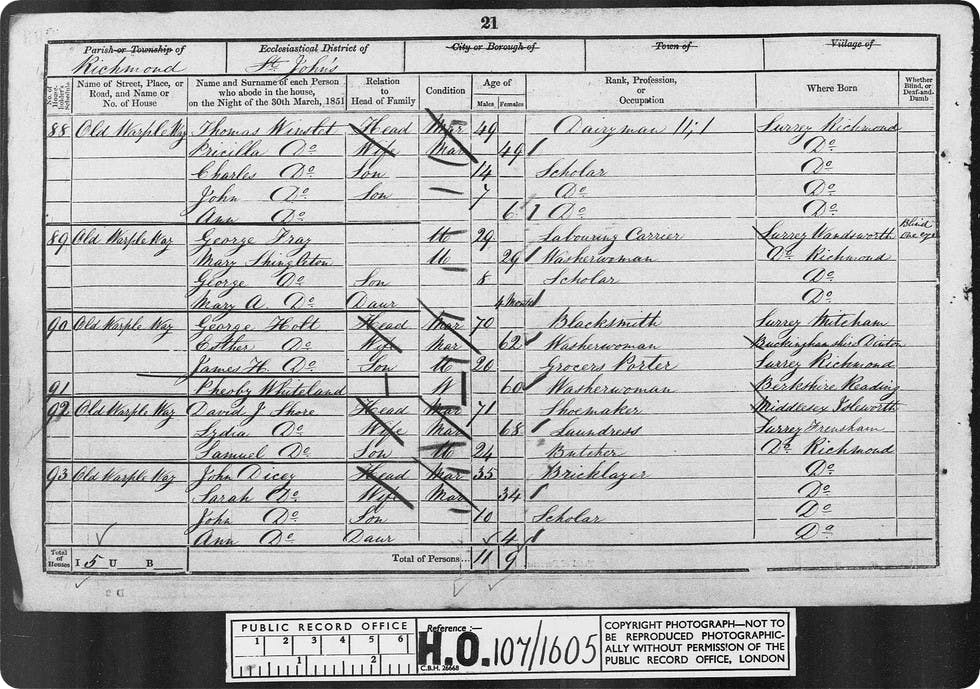 21
Parish or Township of
Richmond
Ecclesiastical District of
St. John's
City or Borough of
Town of
Village of
Name of Street, Place, or Road, and Name or No. of House
Name and Surname of each Person who abode in the house, on the Night of the 30th March, 1851
Relation to Head of Family
Condition
Age of
Males Females
Rank, Profession, or Occupation
Where Born
Whether Blind, or Deaf-and-Dumb
88 Old Warple Way Thomas Winslet Head Mar 49 Dairyman Surrey Richmond
Pricilla Do Wife Mar 49 Do
Charles Do Son 14 Scholar Do
John Do Son 7 Do Do
Ann Do 6 Do Do
89 Old Warple Way George Fray U 29 Labouring Carrier Surrey Wandsworth Blind One eye
Mary Shingleton U 29 Washerwoman Do Richmond
George Do Son 8 Scholar Do
Mary A. Do Daur 4 Months Do
90 Old Warple Way George Holt Head Mar 70 Blacksmith Surrey Mitcham
Esther Do Wife Mar 62 Washerwoman Buckinghamshire
James H. Do Son U 20 Grocers Porter Surrey Richmond
91 Pheoby Whiteland W 60 Washerwoman Berkshire Reading
92 Old Warple Way David J Shore Head Mar 71 Shoemaker Middlesex Isleworth
Lydia Do Wife Mar 68 Laundress Surrey Frensham
Samuel Do Son U 24 Butcher Do Richmond
93 Old Warple Way John Dicey Head Mar 35 Bricklayer Do
Sarah Do Wife Mar 34 Do
John Do Son 10 Scholar Do
Ann Do Daur 4 Do
Total of Houses I 5 U B Total of Persons... 11 9
PUBLIC RECORD OFFICE
1 2 3 4 5 6
1 2
Reference :—
H.O. 107/1605
C.B.H. 26668
COPYRIGHT PHOTOGRAPH—NOT TO
BE REPRODUCED PHOTOGRAPHIC-
ALLY WITHOUT PERMISSION OF THE
PUBLIC RECORD OFFICE, LONDON